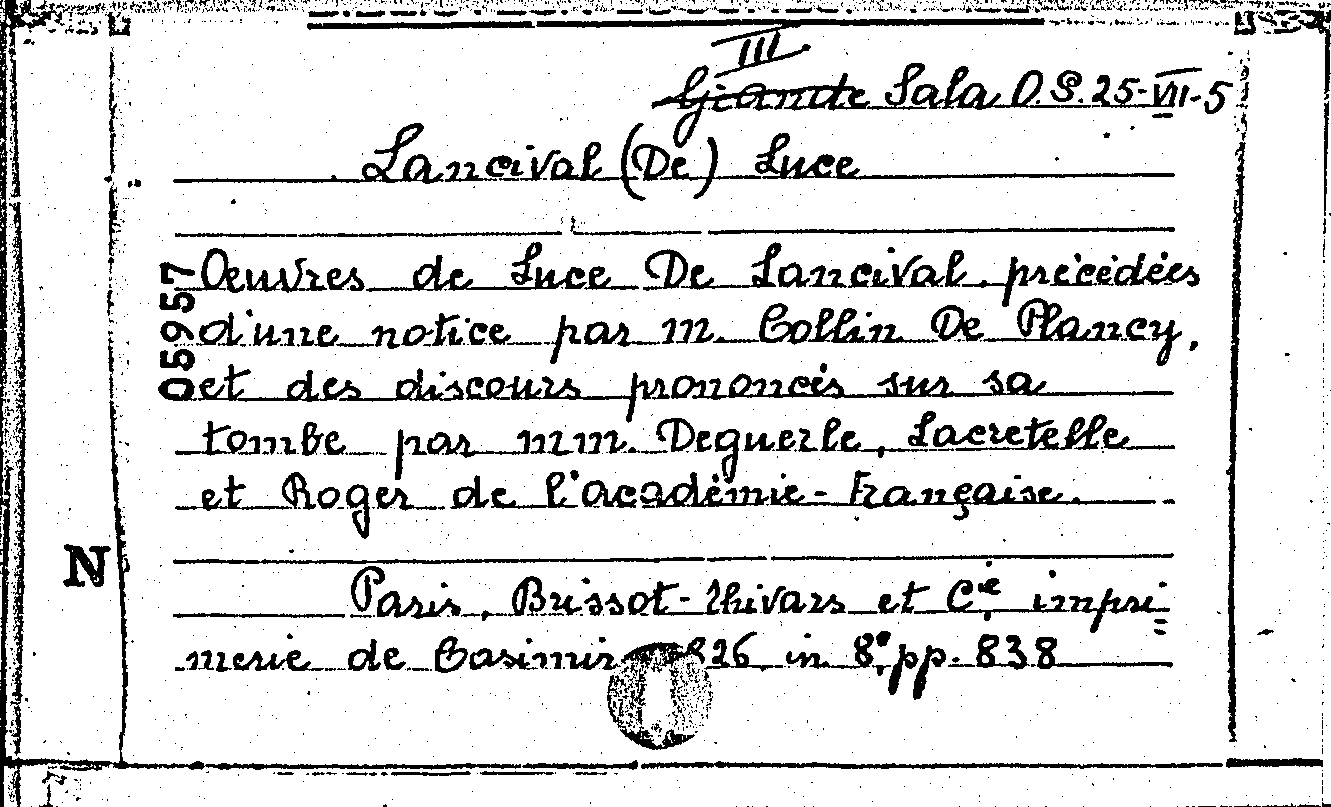 III
Grande Sala O.S. 25-VII-5
Lancival (De) Luce
Oeuvres de Luce De Lancival, précédées
d'une notice par M. Collin De Plancy,
et des discours prononcés sur sa
tombe par MM. Deguerle, Lacretelle
et Roger de l'académie-Française.
Paris, Brissot-Thivars et Cie, impri=
merie de Casimir 1826 in 8°, pp. 838
05957
N